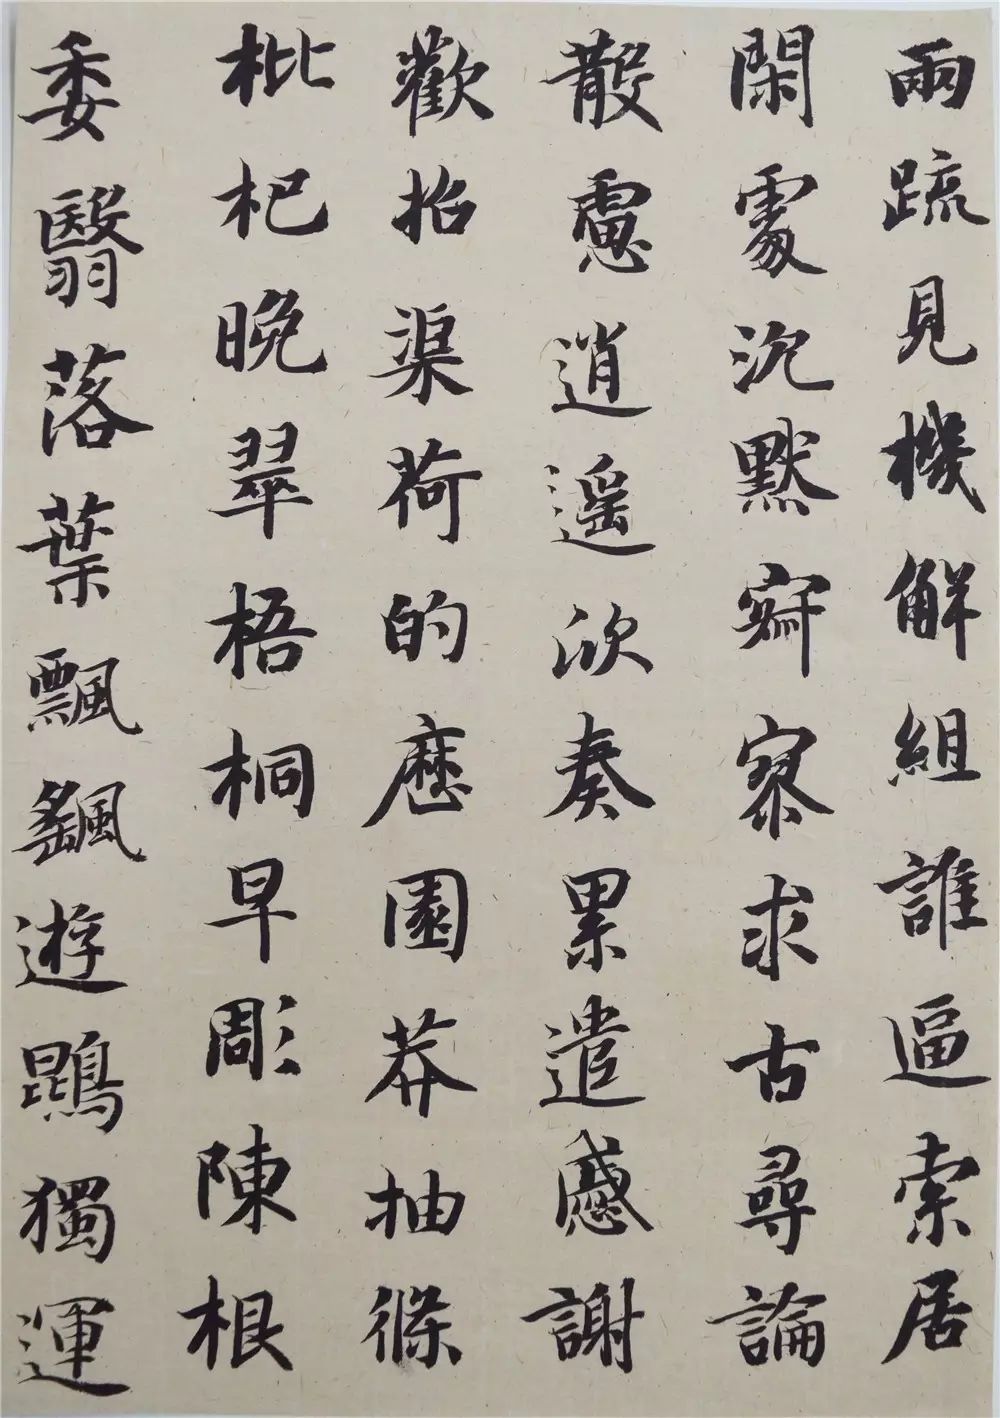 兩疏見機解組誰逼索居
閑處沉默寂寥求古尋論
散慮逍遙欣奏累遣慼謝
歡招渠荷的歷園莽抽條
枇杷晚翠梧桐早彫陳根
委翳落葉飄颻遊鵾獨運